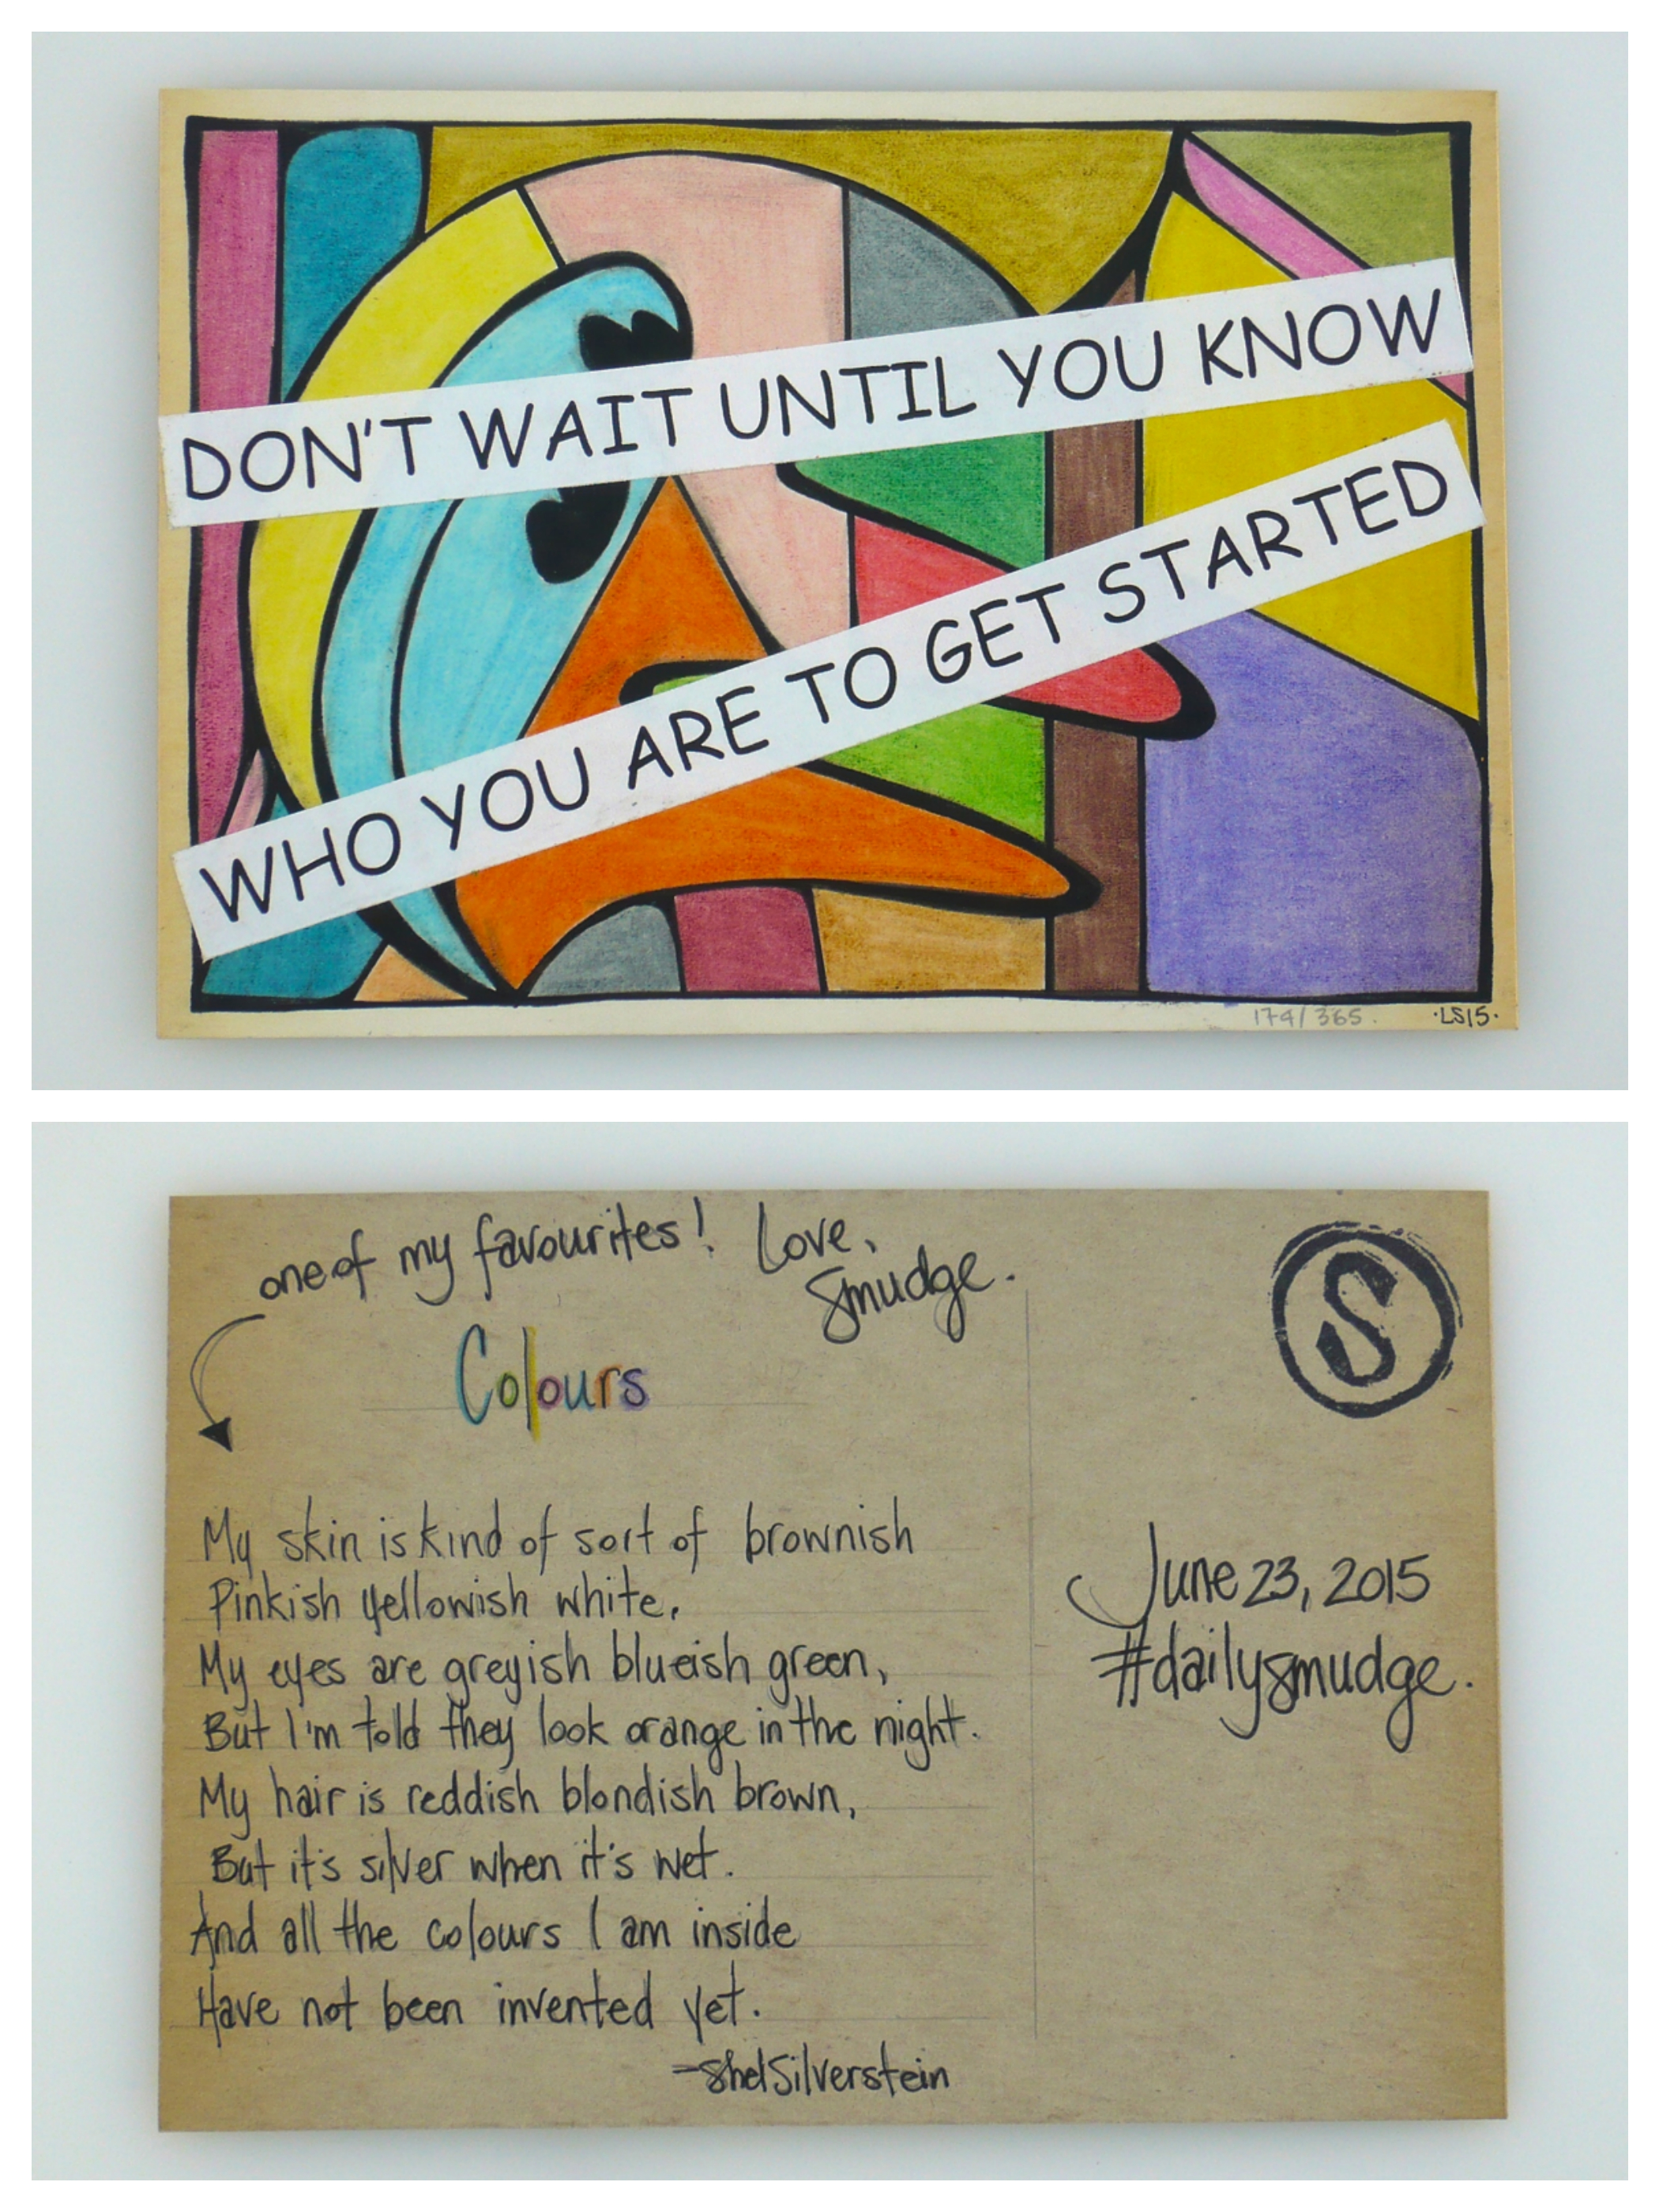 DON'T WAIT UNTIL YOU KNOW
WHO YOU ARE TO GET STARTED
174/365.
·LS15·
one of my favourites! Love,
Smudge.
S
Colours
My skin is kind of sort of brownish
Pinkish yellowish white.
My eyes are greyish blueish green,
But I'm told they look orange in the night.
My hair is reddish blondish brown,
But it's silver when it's wet.
And all the colours I am inside
Have not been invented yet.
-Shel Silverstein
June 23, 2015
#dailysmudge.